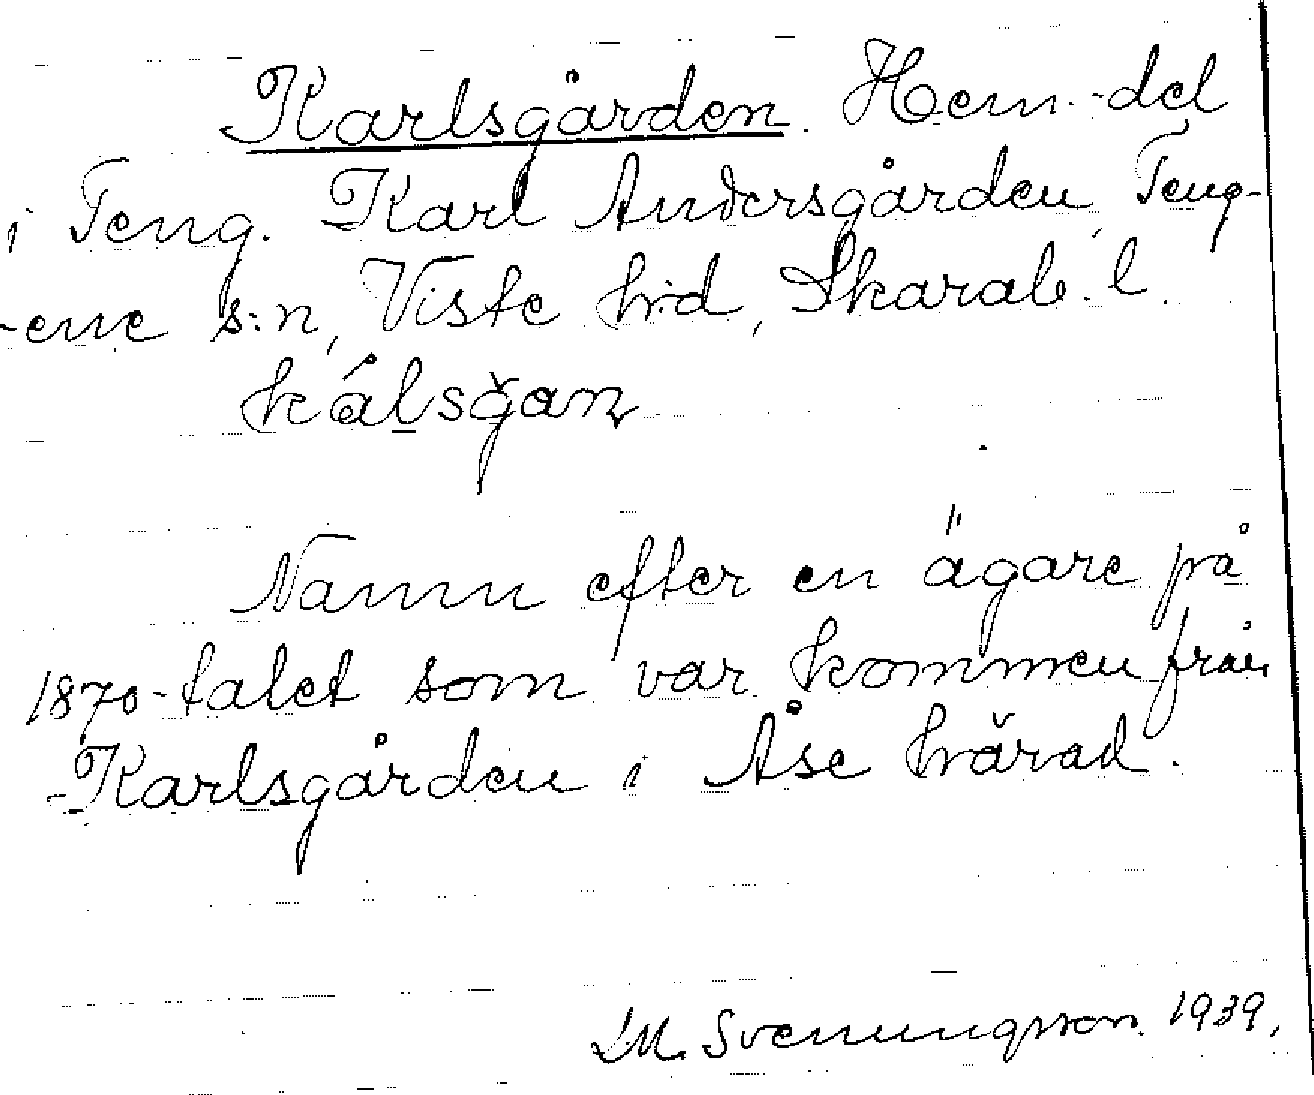 Karlsgården. Hem.-del
i Teng. Karl Andersgården, Teng-
-ene s:n, Viste hd, Skarab. l.
kálsğaɳ
Namn efter en ägare på
1870-talet som var kommen från
Karlsgården i Åse härad.
D.M. Svenungsson. 1939.